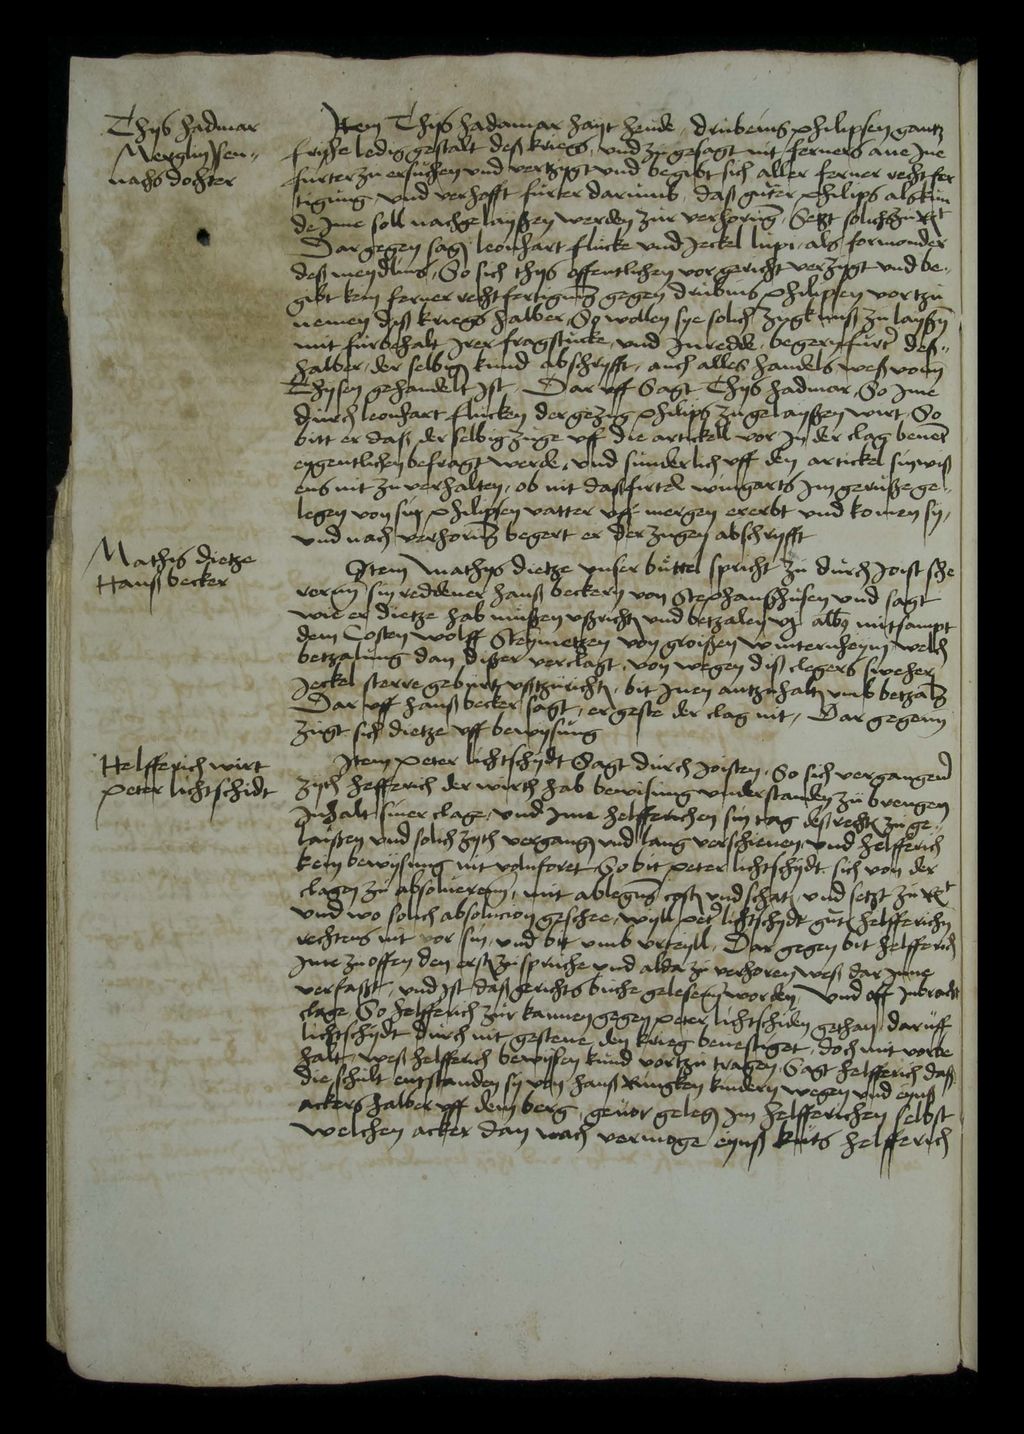 Thijs hadmar
Merglin sen-
nachs dochter
Item Thijs hadamar hait heude drubeins philipsen gantz
frijhe ledig gestalt deß kriegs, vnd zugesagt nit ferners ane Ine
furter zu ersuchen vnd vertzygt vnd begibt sich aller ferner rechtfer
tigung vnd verhofft furter darumb, daß guter philips als kun
de Ime soll nachgelaißen werden zur verhorung, Setzt solichs zu Recht
Dar gegen sagen leonhart flucke vnd Jeckel lupi, als formonder
deß meydlins, So sich thijs offentlichen vor gericht verzygt vnd be-
gibt kein ferner rechtfertigung gegen drubins philipsen vortzu
nemen daß kriegs halber, So wollen sye solich zugknuß zu laißen
mit furbehalt Irer fragstucke, vnd Inredde, begern furter deß-
halber, der selbigen kund abschrifft, auch alles handels weß vom
Thijsen gehandelt Ist. Dar vff Sagt Thijs hadmar, So Ime
durch leonhart flucken der gezug philips zugelaißen wirt, So
bitt er daß der selbig zuge vff die artickell vor In der clag benent
eygentlichen befragt werde, vnd sunderlich vff den artickel sinwiß
ens nit zu verhalten, ob nit daß firtel wingarts Im geruße ge-
legen von sin philipsen vatter vff mergen ererbt vnd komen sy,
vnd nach verhorung begert er der zugen abschrifft
Mathis dietze
Hanß becker
Item Mathijs dietze vnser büttel spricht zu durch Joist sche
rorun sin reddener hanß beckern von Stephanßhusen vnd sagt
wie er dietze hab mußen vßrichten vnd betzalen vj albus mitsampt
dem Costen wolff Steynmetzen von groißen winternheym welch
betzalung dan dißer verclagt, von wegen diß clegers sweher
Jeckel sterre geburt vßtzurichten, bit Inen antzuhalten vmb betzalung
Dar vff hanß becker sagt, er geste der clag nit, Dar gegenn
zugt sich dietze vff bewijsung
Helfferich wirt
Peter lichtschidt
Item Peter lichtschijdt Sagt durch Joisten, So sich vergangener
zijth hefferich der wirth hab bewisung vnderstanden zu brengen
Inhalt siner clage, vnd Ime helfferichen sin tag deß rechten zuge-
laißen vnd solich zijth vergangen vnd lang verschienen, vnd helfferich
kein bewijsung nit volnforet So bit peter lichtschijdt sich von der
clagen zu absolueren, mit ablegung costen vnd schaten, vnd setzt zu Recht
vnd wo solich absolucion geschee, wijll peter lichtschijdt guten helfferichen
rechtens nit vor sin, vnd bit vmb vrteyll, Dar gegen bit helfferich
Ime zu offen den ersten zuspruche vnd alda zu verhoren weß dar Inne
verfasst, vnd Ist daß gerichts buche gelesen worden, vnd vff Inbracht
clage, So helfferich zur kannen gegen peter lichtschiden gethan, daruff
lichtschijdt durch nit gestene, den krieg beuestiget, doch mit vorbe
halt, weß helfferich bewijsen kund vortzu tragen, Sagt helfferich daß
die schult entstanden sy von hanß Ringken kindern wegen vnd eynß
ackers halber vff dem berg, genor gelegen Im helfferichen selbst
welchen acker dan nach vermoge eynß kuts helfferich